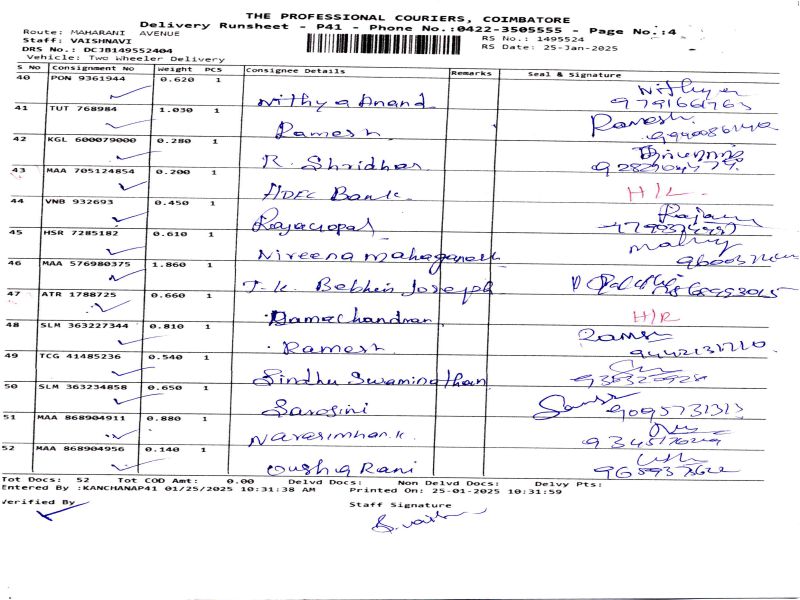 THE PROFESSIONAL COURIERS, COIMBATORE
Delivery Runsheet - P41 - Phone No.:0422-3505555 - Page No.:4
Route: MAHARANI AVENUE
RS No.: 1495524
Staff: VAISHNAVI
RS Date: 25-Jan-2025
DRS No.: DCJB149552404
Vehicle: Two Wheeler Delivery
S No Consignment No Weight PCS Consignee Details Remarks Seal & Signature
40 PON 9361944 0.620 1 Nithya Anand Nithya 9791661763
41 TUT 768984 1.030 1 Ramesh Ramesh
42 KGL 600079000 0.280 1 R. Shridhar
43 MAA 705124854 0.200 1 HDFC Bank H/L
44 VNB 932693 0.450 1 Rajagopal Rajam
45 HSR 7285182 0.610 1 Nireena mahaganesh
46 MAA 576980375 1.860 1 J.K. Bebhein Joseph
47 ATR 1788725 0.660 1 Ramachandran H/R
48 SLM 363227344 0.810 1 Ramesh
49 TCG 41485236 0.540 1 Sindhu Swaminathan
50 SLM 363234858 0.650 1 Sarosini 9095731313
51 MAA 868904911 0.880 1 Narasimhan.k
52 MAA 868904956 0.140 1 Ousha Rani
Tot Docs: 52 Tot COD Amt: 0.00 Delvd Docs: Non Delvd Docs: Delvy Pts:
Entered By :KANCHANAP41 01/25/2025 10:31:38 AM Printed On: 25-01-2025 10:31:59
Verified By
Staff Signature